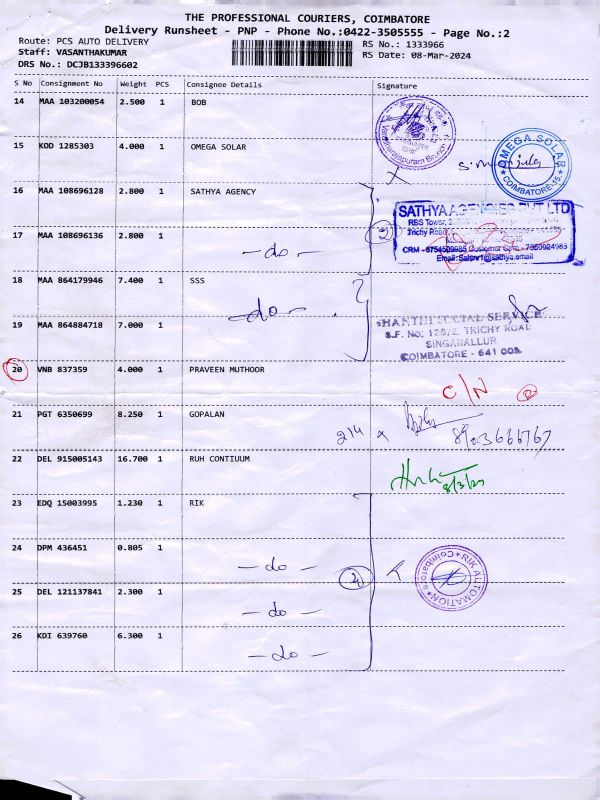 THE PROFESSIONAL COURIERS, COIMBATORE
Delivery Runsheet - PNP - Phone No.:0422-3505555 - Page No.:2
Route: PCS AUTO DELIVERY
RS No.: 1333966
Staff: VASANTHAKUMAR
RS Date: 08-Mar-2024
DRS No.: DCJB133396602
S No Consignment No Weight PCS Consignee Details Signature
14 MAA 103200054 2.500 1 BOB
15 KOD 1285303 4.000 1 OMEGA SOLAR
OMEGA SOLAR
COIMBATORE-15
16 MAA 108696128 2.800 1 SATHYA AGENCY
SATHYA AGENCIES PVT LTD
RBS Tower,
Trichy Road
Email:
17 MAA 108696136 2.800 1
-do-
18 MAA 864179946 7.400 1 SSS
-do-
19 MAA 864884718 7.000 1
SHANTHI SOCIAL SERVICE
S.F. No; 128/2, TRICHY ROAD
SINGANALLUR
COIMBATORE - 641 005
20 VNB 837359 4.000 1 PRAVEEN MUTHOOR
C/N
21 PGT 6350699 8.250 1 GOPALAN
214
8903666767
22 DEL 915005143 16.700 1 RUH CONTIUUM
23 EDQ 15003995 1.230 1 RIK
24 DPM 436451 0.805 1
-do-
RIK AUTOMATION
Coimbatore
25 DEL 121137841 2.300 1
-do-
26 KDI 639760 6.300 1
-do-